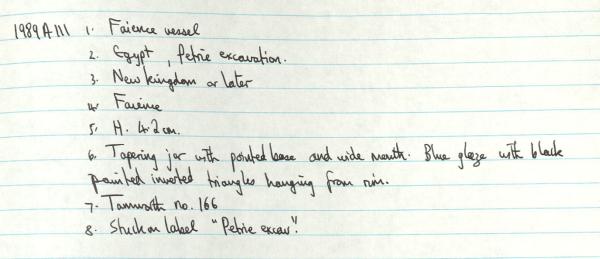 1989 A 111 1. Faience vessel
2. Egypt, Petrie excavation.
3. New Kingdom or later
4. Faience
5. H. 4.2 cm.
6. Tapering jar with pointed base and wide mouth. Blue glaze with black
painted inverted triangles hanging from rim.
7. Tamworth no. 166
8. Stuck on label "Petrie excav".